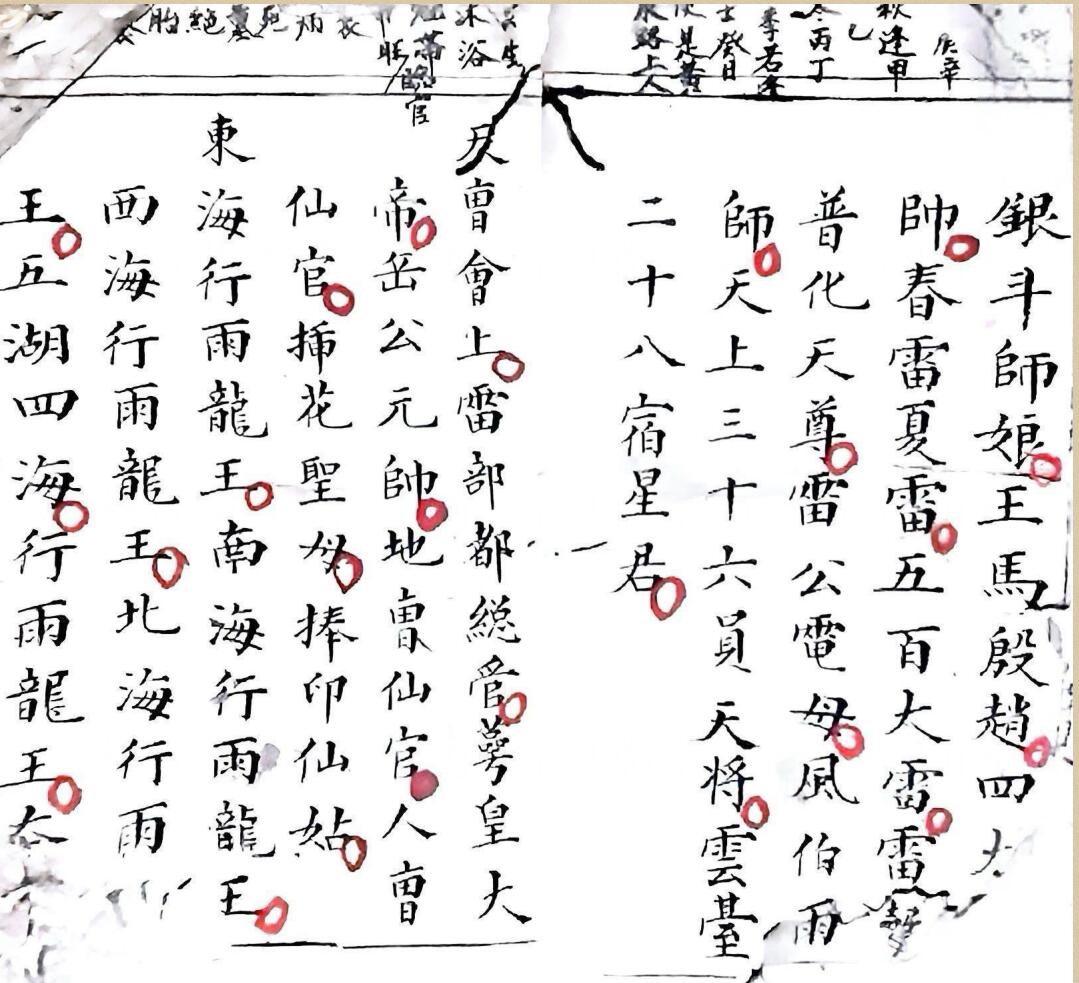 庚辛
秋逢甲
乙
冬丙丁
季若逢
壬癸日
便是黃
泉路上人
銀斗師娘王馬殷趙四
帥春雷夏雷五百大雷雷
普化天尊雷公電母風伯雨
師天上三十六員天將雲臺
二十八宿星君
生
沐浴
冠帶臨官
帝旺
衰
病
死
墓
絕
胎
天曺會上雷部都總管萼皇大
帝岳公元帥地曺仙官人曺
仙官插花聖母捧印仙姑
東海行雨龍王南海行雨龍王
西海行雨龍王北海行雨
王五湖四海行雨龍王